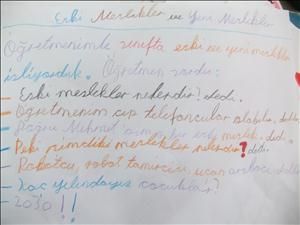 Eski Meslekler ve Yeni Meslekler
Öğretmenimle sınıfta eski ve yeni meslekler
izliyorduk. Öğretmen sordu:
- Eski meslekler nelerdir? dedi.
- Öğretmenim cep telefoncular olabilir. dedi
Mehmet bir eski meslek. dedi.
- Peki şimdiki meslekler nelerdir? dedi.
- Robotcu, robot tamircisi, uçan arabacı dedi
- Kaç yılındayız çocuklar?
- 2030!!